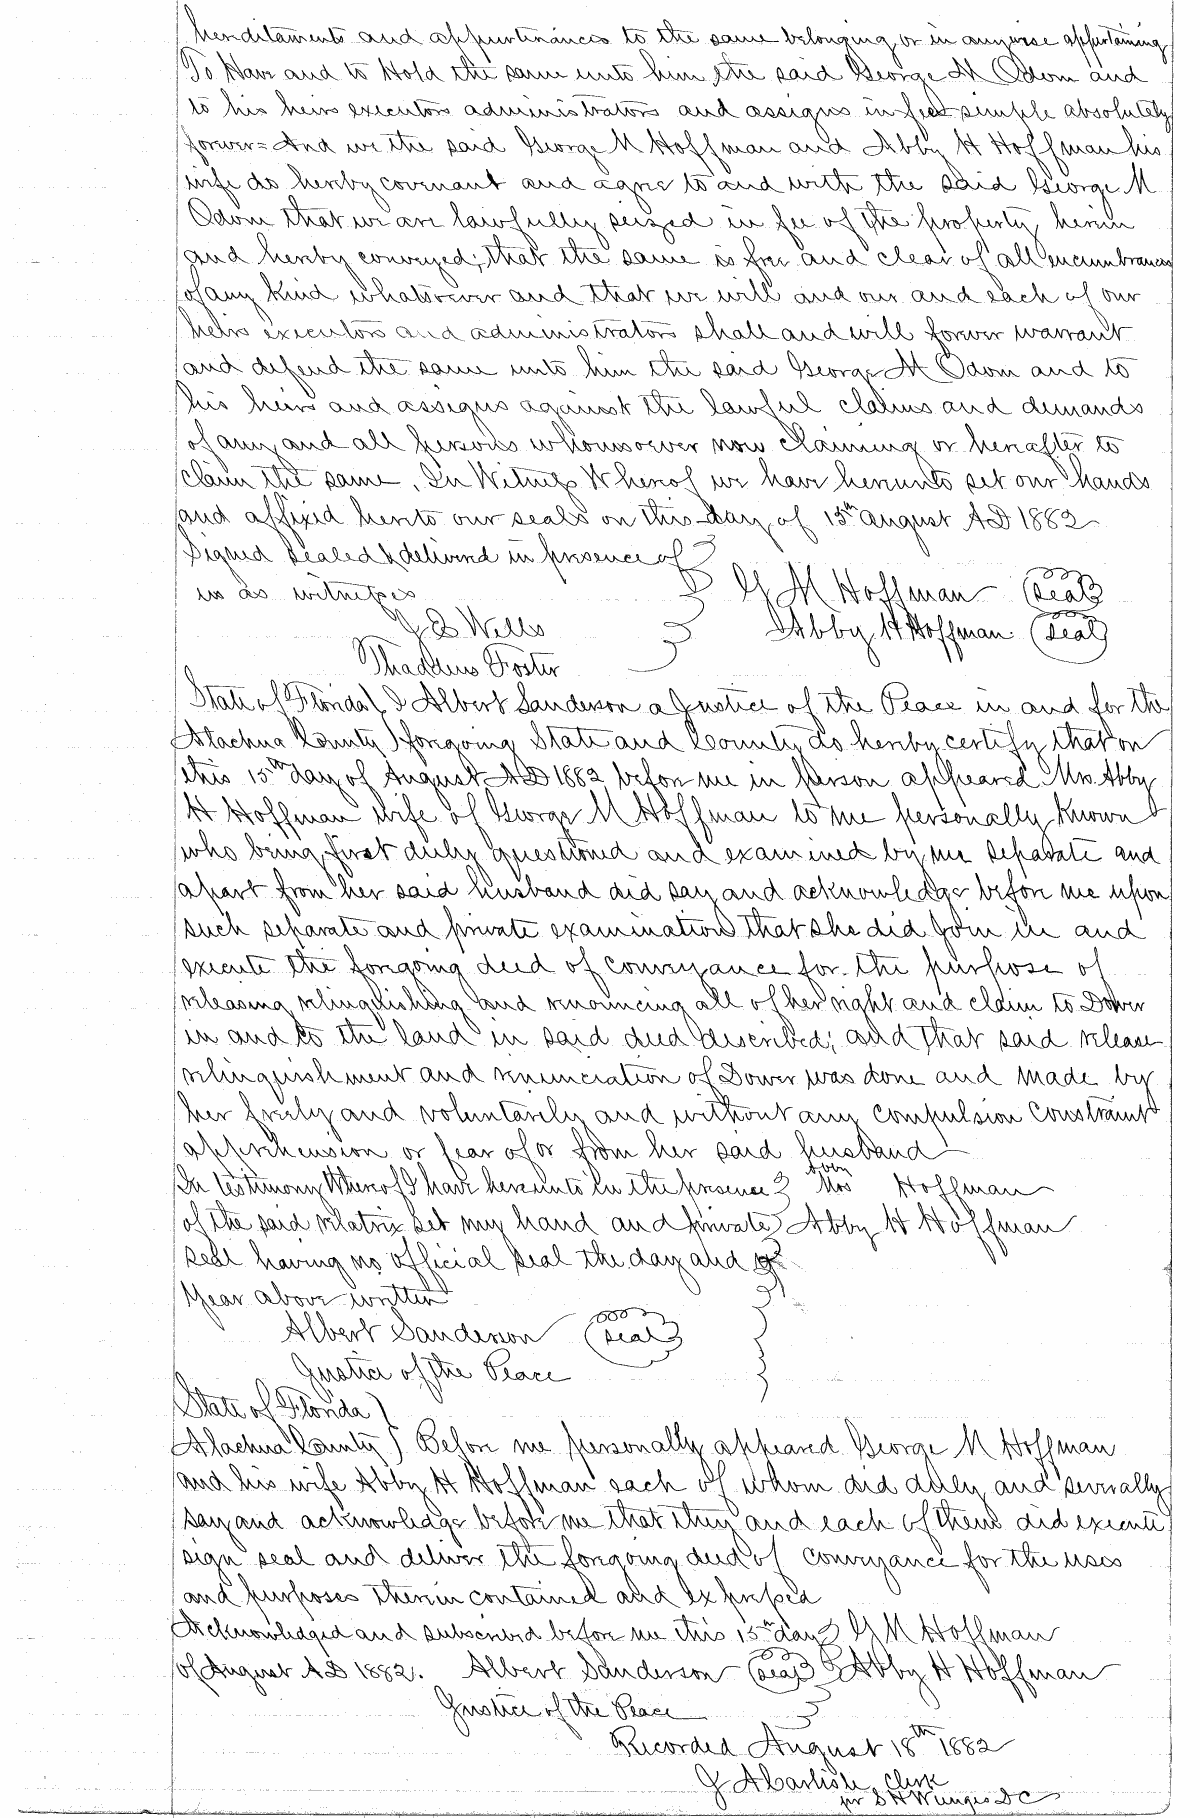 hereditaments and appurtenances to the same belonging or in anywise appertaining
To Have and to Hold the same unto him, the said George M Odom and
to his heirs executors administrators and assigns in fee simple absolutely
forever = And we the said George M Hoffman and Abby H Hoffman his
wife do hereby covenant and agree to and with the said George M
Odom that we are lawfully seized in fee of the property herein
and hereby conveyed; that the same is free and clear of all encumbrances
of any kind whatsoever and that we will and our and each of our
heirs executors and administrators shall and will forever warrant
and defend the same unto him the said George M Odom and to
his heirs and assigns against the lawful claims and demands
of any and all persons whomsoever now claiming or hereafter to
claim the same. In Witness Whereof we have hereunto set our hands
and affixed hereto our seals on this day of 15th august AD 1882
Signed Sealed & delivered in presence of
us as witnesses G M Hoffman (seal)
Wells Abby H Hoffman (seal)
Thaddeus Foster
State of Florida ) I Albert Sanderson a Justice of the Peace in and for the
Alachua County ) foregoing State and County do hereby certify that on
this 15th day of August AD 1882 before me in person appeared Mrs. Abby
H Hoffman wife of George M Hoffman to me personally known
who being first duly questioned and examined by me separate and
apart from her said husband did say and acknowledge before me upon
such separate and private examination that she did join in and
execute the foregoing deed of conveyance for the purpose of
releasing relinquishing and renouncing all of her right and claim to Dower
in and to the land in said deed described; and that said release
relinquishment and renunciation of Dower was done and made by
her freely and voluntarily and without any compulsion constraint
apprehension or fear of or from her said husband
In testimony Whereof I have hereunto in the presence Mrs Hoffman
of the said relatrix set my hand and private Abby H Hoffman
seal having no official seal the day and
Year above written
Albert Sanderson (seal)
Justice of the Peace
State of Florida )
Alachua County ) Before me personally appeared George M Hoffman
and his wife Abby H Hoffman each of whom did duly and severally
say and acknowledge before me that they and each of them did execute
sign seal and deliver the foregoing deed of conveyance for the uses
and purposes therein contained and expressed
Acknowledged and subscribed before me this 15th day G M Hoffman
of August AD 1882. Albert Sanderson (seal) Abby H Hoffman
Justice of the Peace
Recorded August 18th 1882
J A Carlisle Clerk
per D C